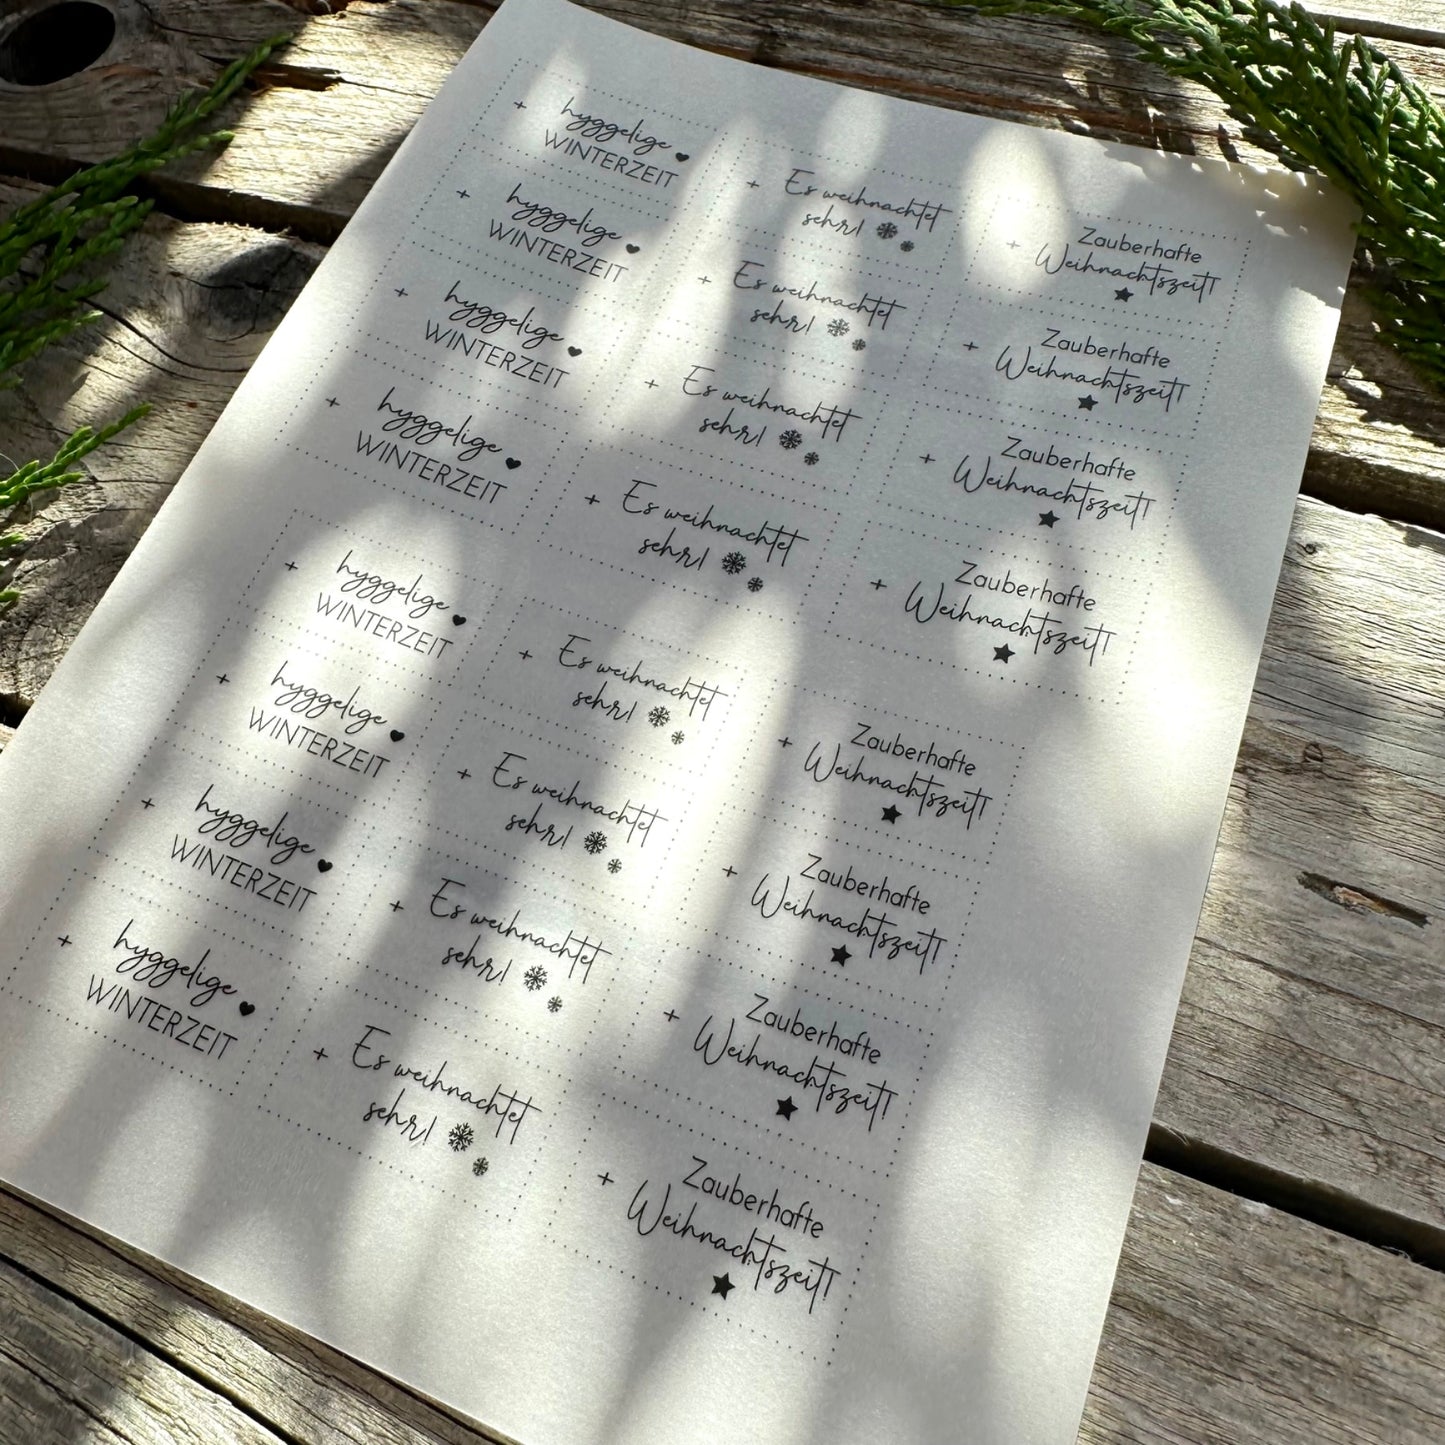 hyggelige
WINTERZEIT
Es weihnachtet
sehr!
Zauberhafte
Weihnachtszeit!
hyggelige
WINTERZEIT
Es weihnachtet
sehr!
Zauberhafte
Weihnachtszeit!
hyggelige
WINTERZEIT
Es weihnachtet
sehr!
Zauberhafte
Weihnachtszeit!
hyggelige
WINTERZEIT
Es weihnachtet
sehr!
Zauberhafte
Weihnachtszeit!
hyggelige
WINTERZEIT
Es weihnachtet
sehr!
Zauberhafte
Weihnachtszeit!
hyggelige
WINTERZEIT
Es weihnachtet
sehr!
Zauberhafte
Weihnachtszeit!
hyggelige
WINTERZEIT
Es weihnachtet
sehr!
Zauberhafte
Weihnachtszeit!
hyggelige
WINTERZEIT
Es weihnachtet
sehr!
Zauberhafte
Weihnachtszeit!